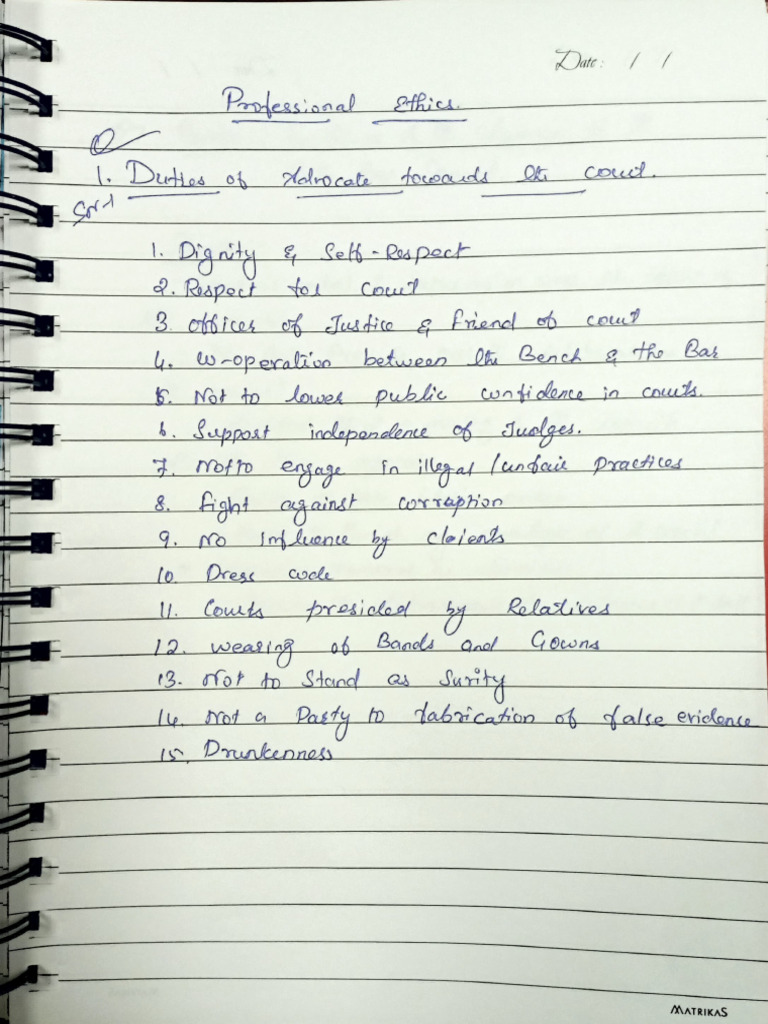 Date: / /
Professional Ethics.
Q
1. Duties of Advocate towards the court.
1. Dignity & Self-Respect
2. Respect for court
3. Officer of Justice & Friend of court
4. co-operation between the Bench & the Bar
5. Not to lower public confidence in courts.
6. Support independence of Judges.
7. Not to engage in illegal/unfair practices
8. Fight against corraption
9. No Influence by Claients
10. Dress code
11. Courts presided by Relatives
12. wearing of Bands and Gowns
13. Not to Stand as Surity
14. Not a Party to fabrication of false evidence
15. Drunkenness
MATRIKAS